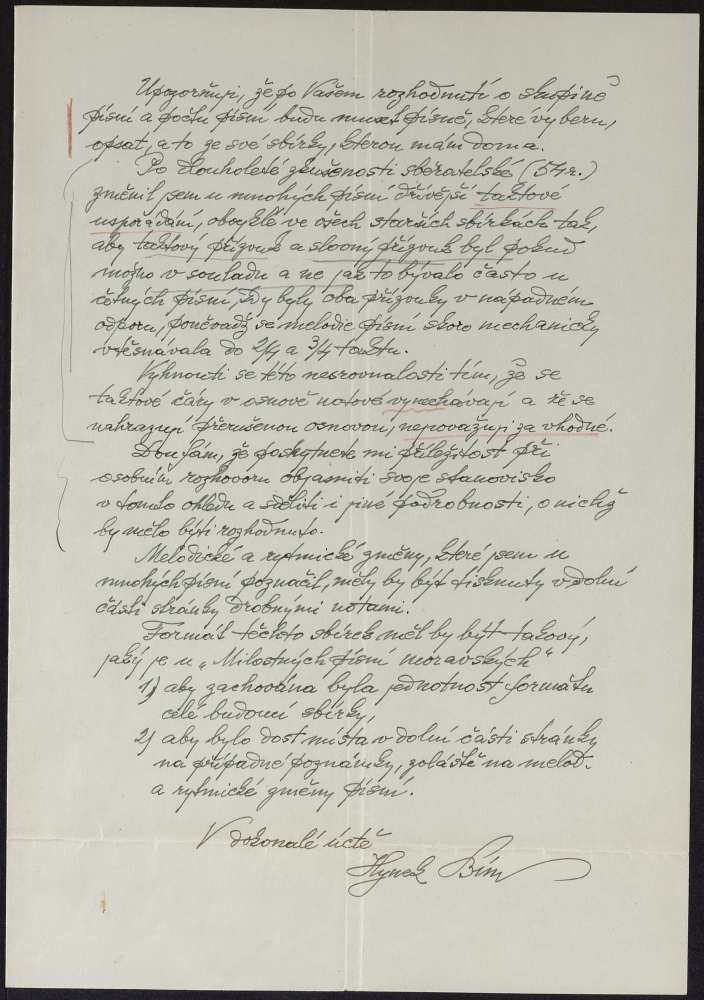 Upozorňuji, že po Vašem rozhodnutí o skupině
písní a počtu písní, budu muset písně, které vyberu,
opsat, a to ze své sbírky, kterou mám doma.
Po dlouholeté zkušenosti sběratelské (54 r.)
změnil jsem u mnohých písní dřívější taktové
uspořádání, obvyklé ve všech starších sbírkách tak,
aby taktový přízvuk a slovný přízvuk byl pokud
možno v souladu a ne jak to bývalo často u
četných písní, kdy byly oba přízvuky v nápadném
odporu, poněvadž se melodie písní skoro mechanicky
vtěsnávala do 2/4 a 3/4 taktu.
Vyhnouti se této nesrovnalosti tím, že se
taktové čáry v osnově notové vynechávají a že se
nahrazují přerušenou osnovou, nepovažuji za vhodné.
Doufám, že poskytnete mi příležitost při
osobním rozhovoru objasniti svoje stanovisko
v tomto ohledu a sděliti i jiné podrobnosti, o nichž
by mělo býti rozhodnuto.
Melodické a rytmické změny, které jsem u
mnohých písní poznačil, měly by být tisknuty v dolní
části stránky drobnými notami.
Formát těchto sbírek měl by být takový,
jaký je u „Milostných písní moravských“
1) aby zachována byla jednotnost formátu
celé budoucí sbírky,
2) aby bylo dost místa v dolní části stránky
na případné poznámky, zvláště na melod.
a rytmické změny písní.
V dokonalé úctě
Hynek Bím